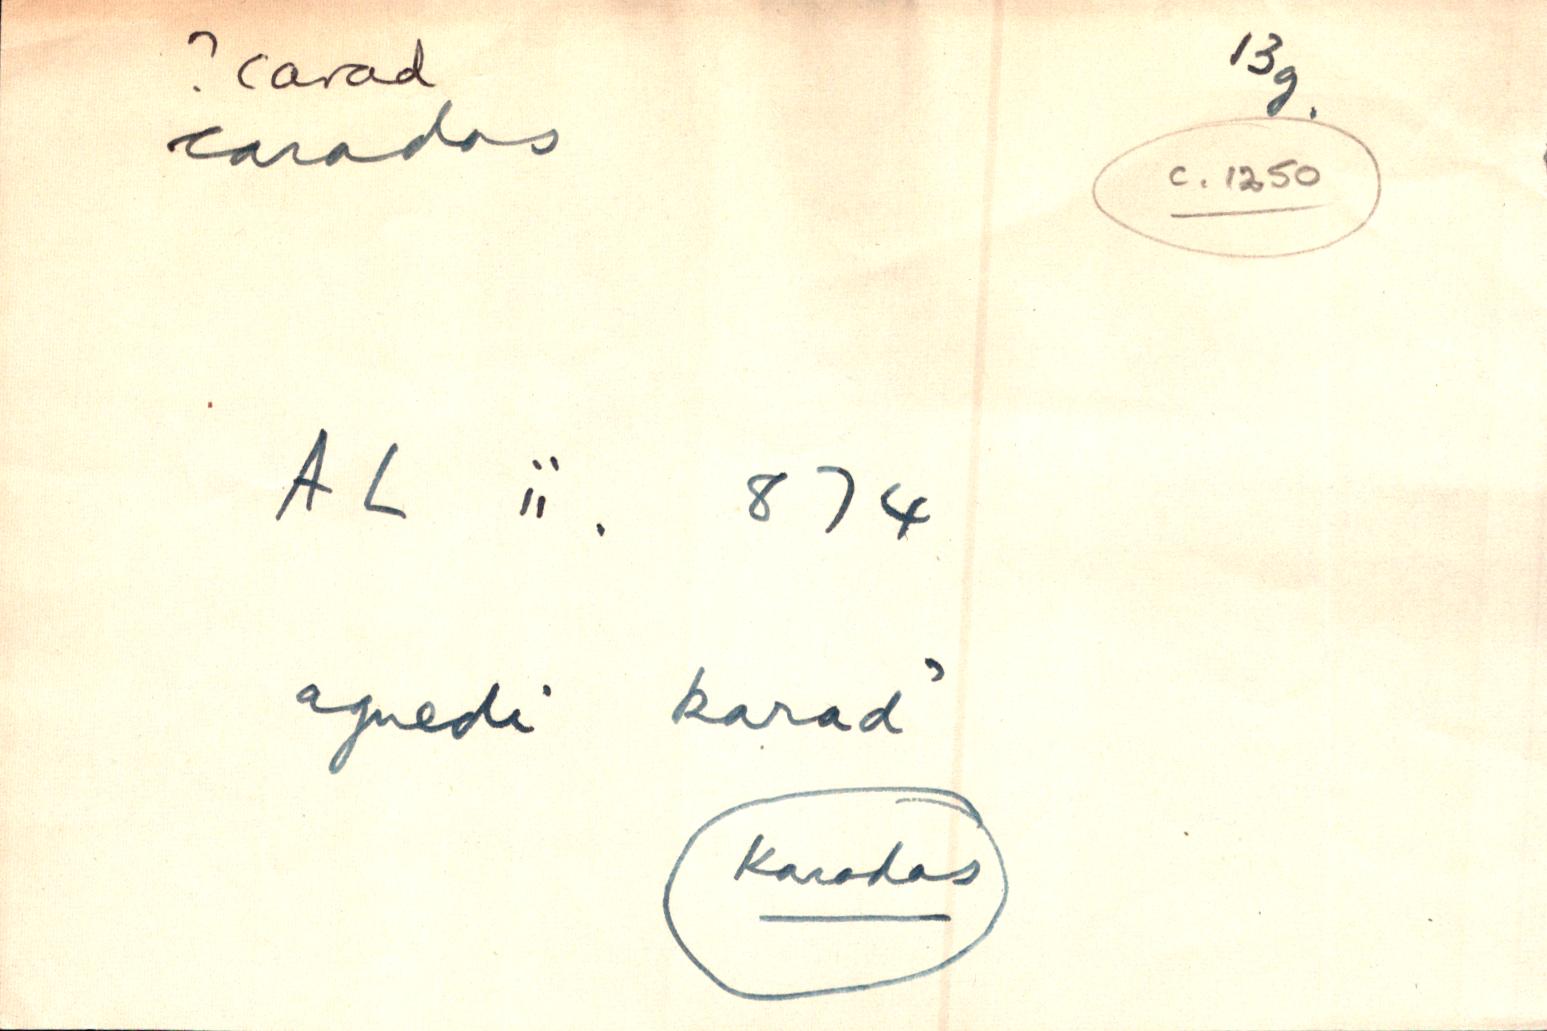 ? carad
caradas
13g.
c. 1250
AL ii. 874
agnedi karad'
Karadas